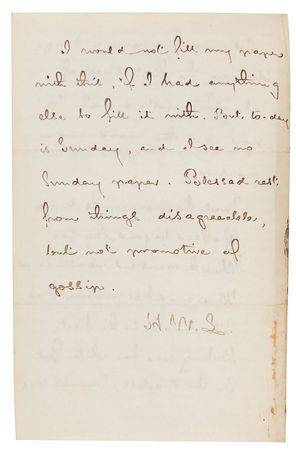 I would not fill my paper
with this, if I had anything
else to fill it with. But to-day
is Sunday, and I see no
Sunday paper. Blessed rest
from things disagreeable,
but not promotive of
gossip.
H. W. L.